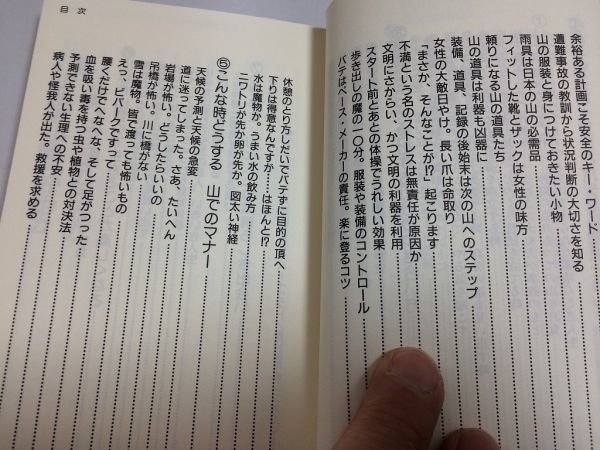 余裕ある計画こそ安全のキー・ワード
遭難事故の教訓から状況判断の大切さを知る
山の服装と身につけておきたい小物
雨具は日本の山の必需品
フィットした靴とザックは女性の味方
頼りになる山の道具たち
山の道具は利器も凶器に
装備、道具、記録の後始末は次の山へのステップ
女性の大敵日やけ。長い爪は命取り
「まさか、そんなことが!?」起こります
不満という名のストレスは無責任が原因か
文明にさからい、かつ文明の利器を利用
スタート前とあとの体操でうれしい効果
歩き出しの魔の一〇分。服装や装備のコントロール
バテはペース・メーカーの責任。楽に登るコツ
休憩のとり方しだいでバテずに目的の頂へ
下りは得意なんですが……はほんと!?
水は魔物か。うまい水の飲み方
ニワトリが先か卵が先か。図太い神経
⑤こんな時どうする 山でのマナー
天候の予測と天候の急変
道に迷ってしまった。さあ、たいへん
岩場が怖い。どうしたらいいの
吊橋が怖い。川に橋がない
雪は魔物。皆で渡っても怖いもの
えっ、ビバークですって
腰くだけでへなへな、そして足がつった
血を吸い毒を持つ虫や植物との対決法
予測できない生理への不安
病人や怪我人が出た。救援を求める
目次